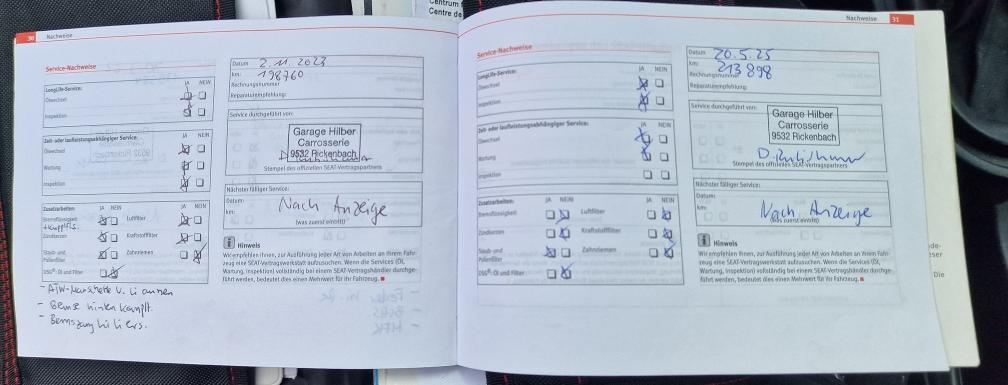 Centrum
Centre de
30 Nachweise
Service-Nachweise
LongLife-Service:
JA NEIN
Ölwechsel
Inspektion
Zeit- oder laufleistungsabhängiger Service:
JA NEIN
Ölwechsel
Wartung
Inspektion
Zusatzarbeiten:
JA NEIN JA NEIN
Bremsflüssigkeit Luftfilter
Zündkerzen Kraftstofffilter
Staub- und Pollenfilter Zahnriemen
DSG®: Öl und Filter
Datum 2.11.2023
km: 198760
Rechnungsnummer
Reparaturempfehlung:
Service durchgeführt von:
Garage Hilber
Carrosserie
9532 Rickenbach
Stempel des offiziellen SEAT-Vertragspartners
Nächster fälliger Service:
Datum:
km: Nach Anzeige
(was zuerst eintritt)
Hinweis
Wir empfehlen Ihnen, zur Ausführung jeder Art von Arbeiten an Ihrem Fahr-
zeug eine SEAT-Vertragswerkstatt aufzusuchen. Wenn die Services (Öl,
Wartung, Inspektion) vollständig bei einem SEAT-Vertragshändler durchge-
führt werden, bedeutet dies einen Mehrwert für Ihr Fahrzeug.
Nachweise 31
Service-Nachweise
LongLife-Service:
JA NEIN
Ölwechsel
Inspektion
Zeit- oder laufleistungsabhängiger Service:
JA NEIN
Ölwechsel
Wartung
Inspektion
Zusatzarbeiten:
JA NEIN JA NEIN
Bremsflüssigkeit Luftfilter
Zündkerzen Kraftstofffilter
Staub- und Pollenfilter Zahnriemen
DSG®: Öl und Filter
Datum 20.5.25
km: 213898
Rechnungsnummer
Reparaturempfehlung:
Service durchgeführt von:
Garage Hilber
Carrosserie
9532 Rickenbach
Stempel des offiziellen SEAT-Vertragspartners
Nächster fälliger Service:
Datum:
km: Nach Anzeige
(was zuerst eintritt)
Hinweis
Wir empfehlen Ihnen, zur Ausführung jeder Art von Arbeiten an Ihrem Fahr-
zeug eine SEAT-Vertragswerkstatt aufzusuchen. Wenn die Services (Öl,
Wartung, Inspektion) vollständig bei einem SEAT-Vertragshändler durchge-
führt werden, bedeutet dies einen Mehrwert für Ihr Fahrzeug.
Die